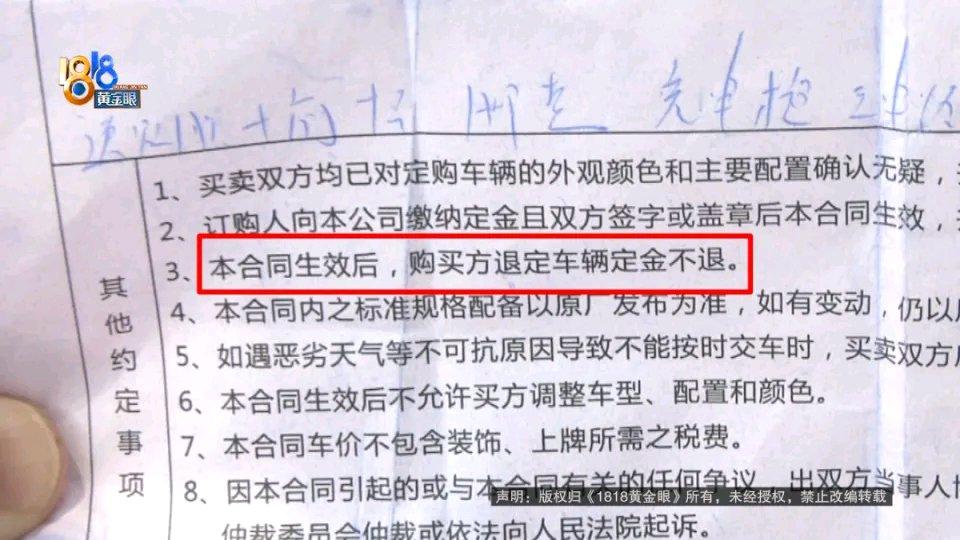 1818
黄金眼
1、买卖双方均已对定购车辆的外观颜色和主要配置确认无疑，
2、订购人向本公司缴纳定金且双方签字或盖章后本合同生效，
3、本合同生效后，购买方退定车辆定金不退。
4、本合同内之标准规格配备以原厂发布为准，如有变动，仍以
5、如遇恶劣天气等不可抗原因导致不能按时交车时，买卖双方
6、本合同生效后不允许买方调整车型、配置和颜色。
7、本合同车价不包含装饰、上牌所需之税费。
8、因本合同引起的或与本合同有关的任何争议，出双方当事人
仲裁委员会仲裁或依法向人民法院起诉。
其他约定事项
声明：版权归《1818黄金眼》所有，未经授权，禁止改编转载